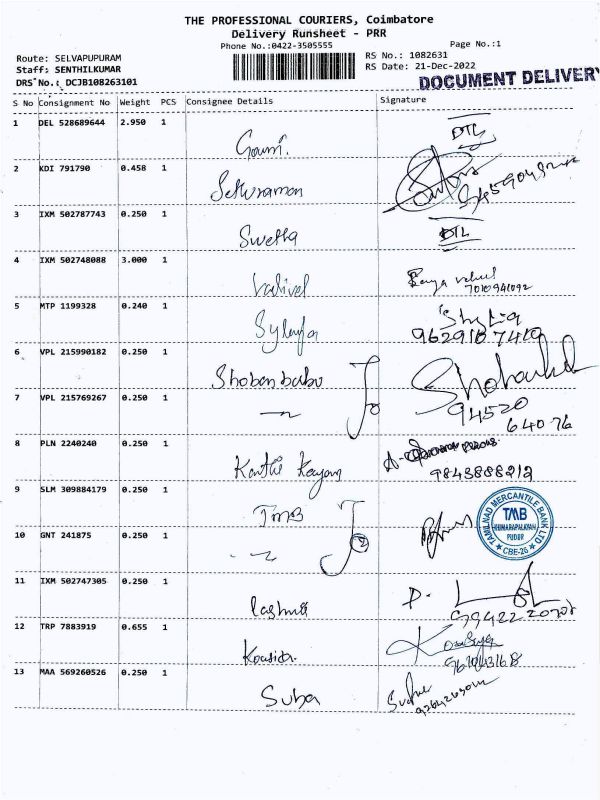 THE PROFESSIONAL COURIERS, Coimbatore
Delivery Runsheet - PRR
Phone No.:0422-3505555
Page No.:1
Route: SELVAPUPURAM
RS No.: 1082631
Staff: SENTHILKUMAR
RS Date: 21-Dec-2022
DRS No.: DCJB108263101
DOCUMENT DELIVERY
S No Consignment No Weight PCS Consignee Details Signature
1 DEL 528689644 2.950 1 Gowri. DTL
2 KDI 791790 0.458 1 Sethuraman
3 IXM 502787743 0.250 1 Swetha DTL
4 IXM 502748088 3.000 1 Vadivel
7010941092
5 MTP 1199328 0.240 1
9629107419
6 VPL 215990182 0.250 1 Shobanbabu
7 VPL 215769267 0.250 1 94520
64076
8 PLN 2240240 0.250 1
9843888212
9 SLM 309884179 0.250 1 TMB
TAMILNAD MERCANTILE BANK LTD
TMB
KUMARAPALAYAM
PUDUR
CBE-26
10 GNT 241875 0.250 1
11 IXM 502747305 0.250 1 P.
12 TRP 7883919 0.655 1
13 MAA 569260526 0.250 1 Suba